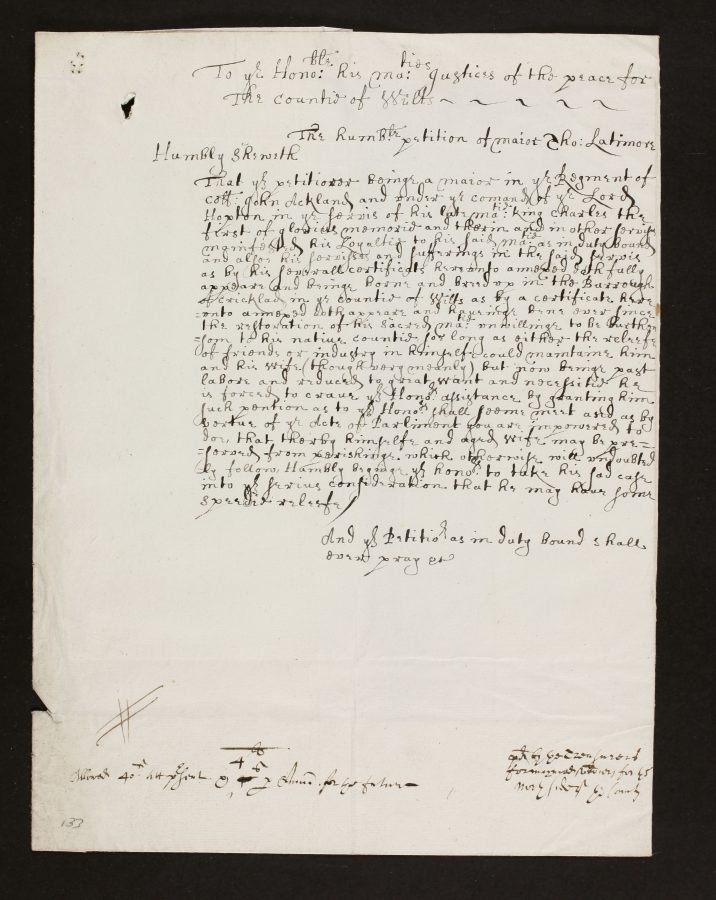 To ye Honoble: his maties: Justices of the peace for
The Countie of Wilts
The humble petition of maior Tho: Latimore
Humbly Sheweth
That ye petitioner beinge a maior in ye Regment of
Coll: John Ackland and under ye comand of ye Lord
Hopton in ye servis of his late matie: king Charles the
first of glorius memorie and therin and in other servises
manifested his Loyaltie to his said matie: as in duty bound
and allso his servises and sufferings in the said servis
as by his severall certificats hereonto anexed doth fully
appeare and beinge borne and bred up in the Burrough
of Cricklad in ye countie of Wilts as by a certificate here
=onto annexed doth appeare and haveinge bene ever since
the restoration of his Sacred ma: unwillinge to be burthen
=som to his native countie soe long as either the releefe
of friends or industry in himselfe could maintaine him
and his wife (though very meanly) but now beinge past
labore and reduced to great want and necessitie he
is forced to crave ye Honors assistance by granting him
such pention as to ye Honors shall seeme meet and as by
vertue of ye Acts of Parliment you are impowered to
doe, that therby himselfe and aged wife may be pre=
=served from perishinge which otherwise will undoubted
ly follow, Humbly beginge ye honors to take his sad case
into ye serius consideration that he may have some
speedie releefe /
And ye Petitior as in duty bound shall
ever pray &c
Allowed 40s att psent & 4 p Annu for the future
pd by the Treasurers
for for ye
North side of ye County
133